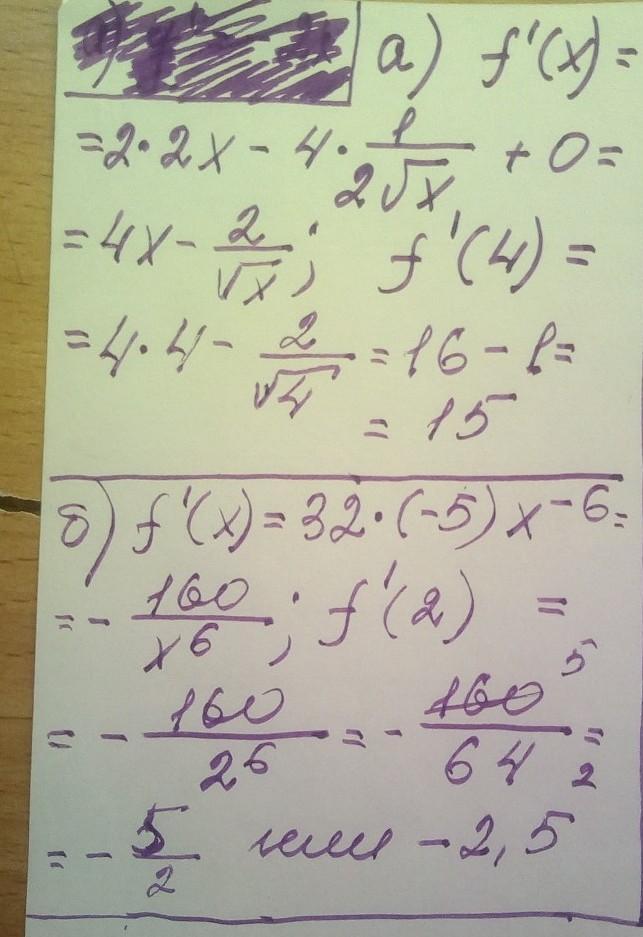 а) f'(x) =
= 2·2x - 4· 1/(2√x) + 0 =
= 4x - 2/√x; f'(4) =
= 4·4 - 2/√4 = 16 - 1 =
= 15
б) f'(x) = 32·(-5) x^-6 =
= - 160/x^6; f'(2) =
= - 160/2^6 = - 160/64 = 5 2
= - 5/2 или -2,5